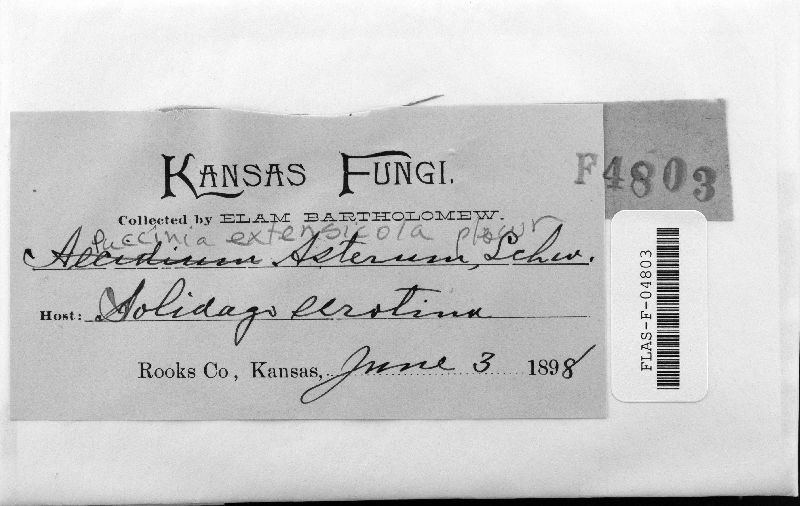 KANSAS FUNGI.
F4803
Collected by ELAM BARTHOLOMEW.
Puccinia extensicola plowr
Aecidium Asterum, Schw.
Host: Solidago serotina
Rooks Co, Kansas, June 3 1898
FLAS-F-04803